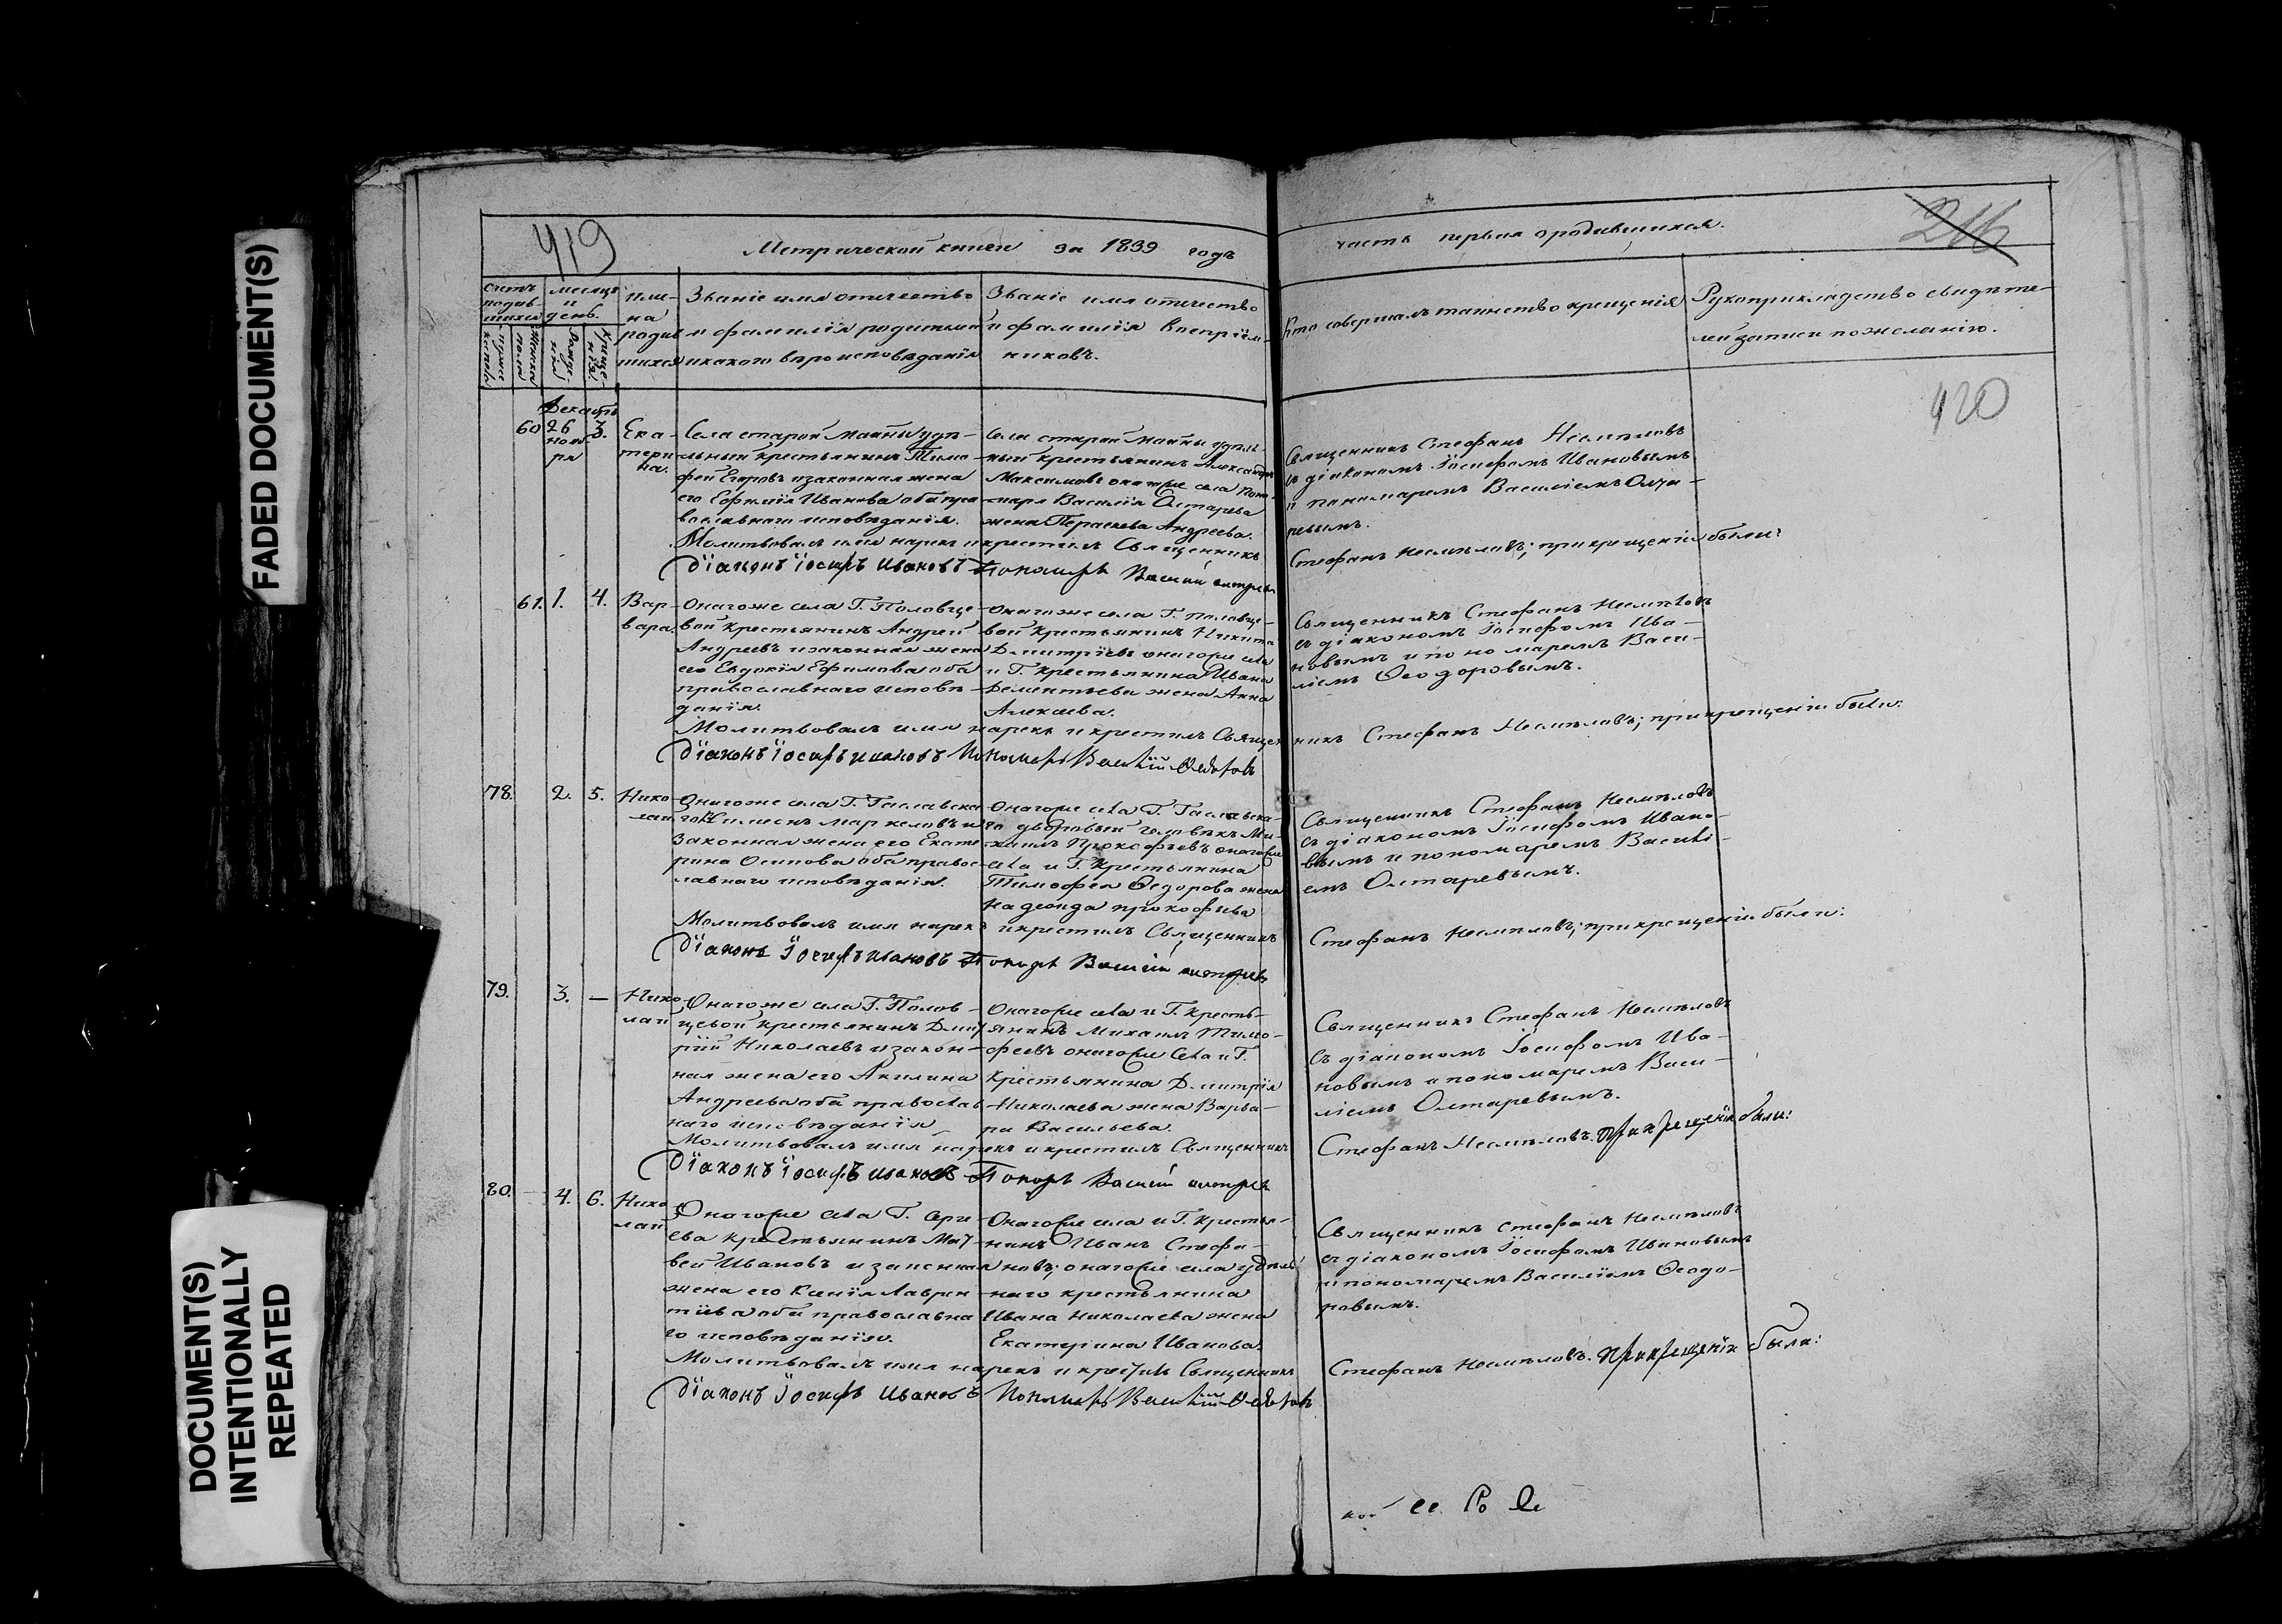 FADED DOCUMENT(S)
DOCUMENT(S)
INTENTIONALLY
REPEATED
419
Метрической книги за 1839 годъ
часть первая о родившихся.
216
420
счетъ
родив-
шихся
мужеска
пола
женска
пола
месяцъ
и
день.
рожде-
нія
креще-
нія.
име-
на
родив
шихся
Званіе имя отечество
и фамилія родителей
и какого вероисповеданія
Званіе имя отечество
и фамилія воспріем-
никовъ.
Кто совершалъ таинство крещенія
Рукоприкладство свидѣте-
лей записи по желанію.
Декабрь
60 26 3.
нояб
ря
Ека-
тери
на.
Села старой Майны удѣ-
льный крестьянинъ Тимо
фей Егоровъ и законная жена
его Ефимія Иванова оба пра
вославнаго исповѣданія.
села старой Майны удѣль-
ный крестьянинъ Александръ
Максимовъ онагоже села поно-
маря Василія Олтарева
жена Параскева Андреева.
Священникъ Стефанъ Несмѣловъ
съ діакономъ Іосифомъ Ивановымъ
и пономаремъ Василіемъ Олта-
ревымъ.
Молитвовалъ имя нарекъ и крестилъ Священникъ Стефанъ Несмѣловъ; при крещеніи были:
Діаконъ Іосифъ Ивановъ Пономарь Василій олтревъ
61. 1. 4.
Вар-
вара.
Онагоже села Г. Половце-
вой крестьянинъ Андрей
Андреевъ и законная жена
его Евдокія Ефимова оба
православнаго исповѣ-
данія.
Онагоже села Г. половце-
вой крестьянинъ Никита
Дмитріевъ онагоже села
и Г. крестьянина Ивана
Дементьева жена Анна
Алексѣева.
Священникъ Стефанъ Несмѣловъ
съ діакономъ Іосифомъ Ива-
новымъ и пономаремъ Васи-
ліемъ Ѳеодоровымъ.
Молитвовалъ имя нарекъ и крестилъ Священникъ Стефанъ Несмѣловъ; при крещеніи были:
Діаконъ Іосифъ Ивановъ Пономарь Василій
78. 2. 5.
Нико-
лай
Онагоже села Г.
Маркеловъ и
законная жена его Екате
рина Осипова оба правос-
лавнаго исповѣданія.
Онагоже села Г.
го дворовый человѣкъ Ми-
хаилъ Прокофьевъ онагоже
села и Г. крестьянина
Тимофея Ѳедорова жена
Надежда прокофьева
Священникъ Стефанъ Несмѣловъ
съ діакономъ Іосифомъ Ивано-
вымъ и пономаремъ Василі-
емъ Олтаревымъ.
Молитвовалъ имя нарекъ и крестилъ Священникъ Стефанъ Несмѣловъ; при крещеніи были:
Діаконъ Іосифъ Ивановъ Василій
79. 3. —
Нико-
лай
Онагоже села Г. Полов-
цевой крестьянинъ Дмит
рій Николаевъ и закон-
ная жена его Акилина
Андреева оба православ
наго исповѣданія
Онагоже села и Г. кресть-
янинъ Михаилъ Тимо-
феевъ онагоже села и Г.
крестьянина Дмитрія
Николаева жена Варва-
ра Васильева.
Священникъ Стефанъ Несмѣловъ
съ діакономъ Іосифомъ Ива-
новымъ и пономаремъ Васи-
ліемъ Олтаревымъ.
Молитвовалъ имя нарекъ и крестилъ Священникъ Стефанъ Несмѣловъ. при крещеніи были:
Діаконъ Іосифъ Ивановъ Василій
80. 4. 6.
Нико
лай
Онагоже села Г. Серге
ева крестьянинъ Мат
вей Ивановъ и законная
жена его Ксенія Лаврен
тіева оба православна
го исповѣданія.
Онагоже села и Г. крестья-
нинъ Иванъ Стефа-
новъ; онагоже села удѣль
наго крестьянина
Ивана Николаева жена
Екатерина Иванова.
Священникъ Стефанъ Несмѣловъ
съ діакономъ Іосифомъ Ивановымъ
и пономаремъ Василіемъ Ѳеодо-
ровымъ.
Молитвовалъ имя нарекъ и крестилъ Священникъ Стефанъ Несмѣловъ. при крещеніи были:
Діаконъ Іосифъ Ивановъ Пономарь Василій